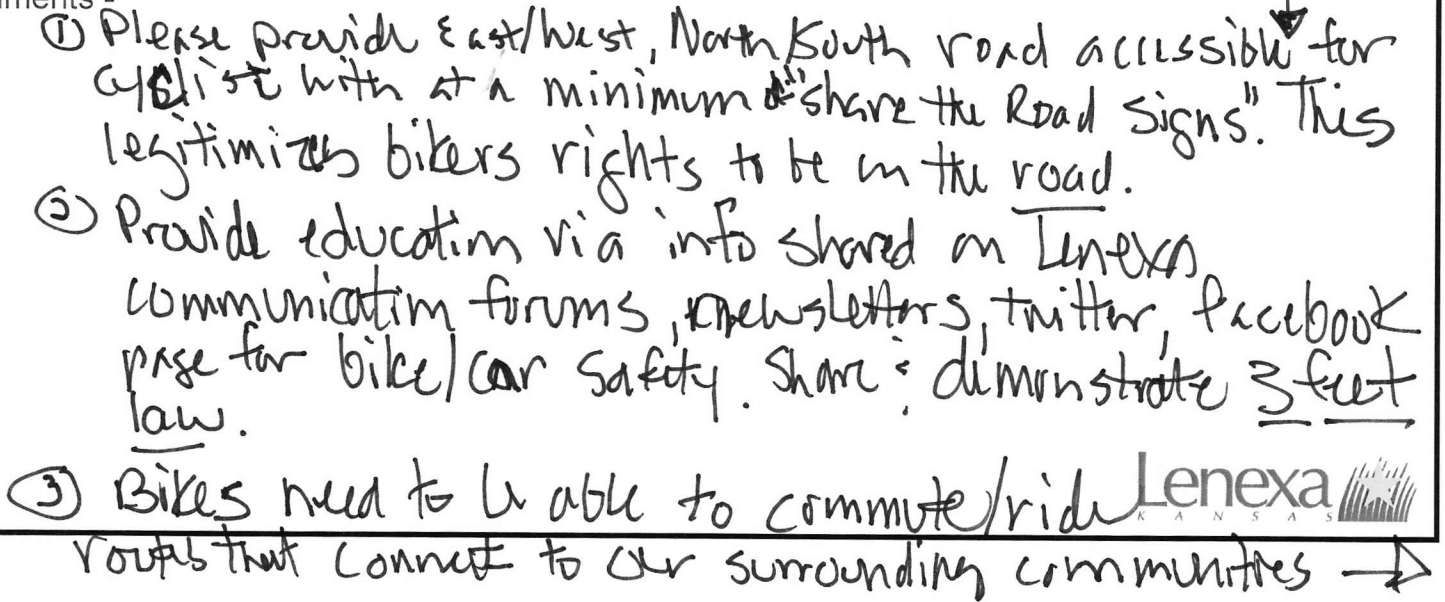 ments -
① Please provide East/West, North/South road accessible for
cyclist with at a minimum "share the Road Signs". This
legitimizes bikers rights to be on the road.
② Provide education via info shared on Lenexa
communication forums, newsletters, twitter, facebook
page for bike/car safety. Share & demonstrate 3 feet
law.
③ Bikes need to be able to commute/ride
Lenexa
KANSAS
routes that connect to our surrounding communities →